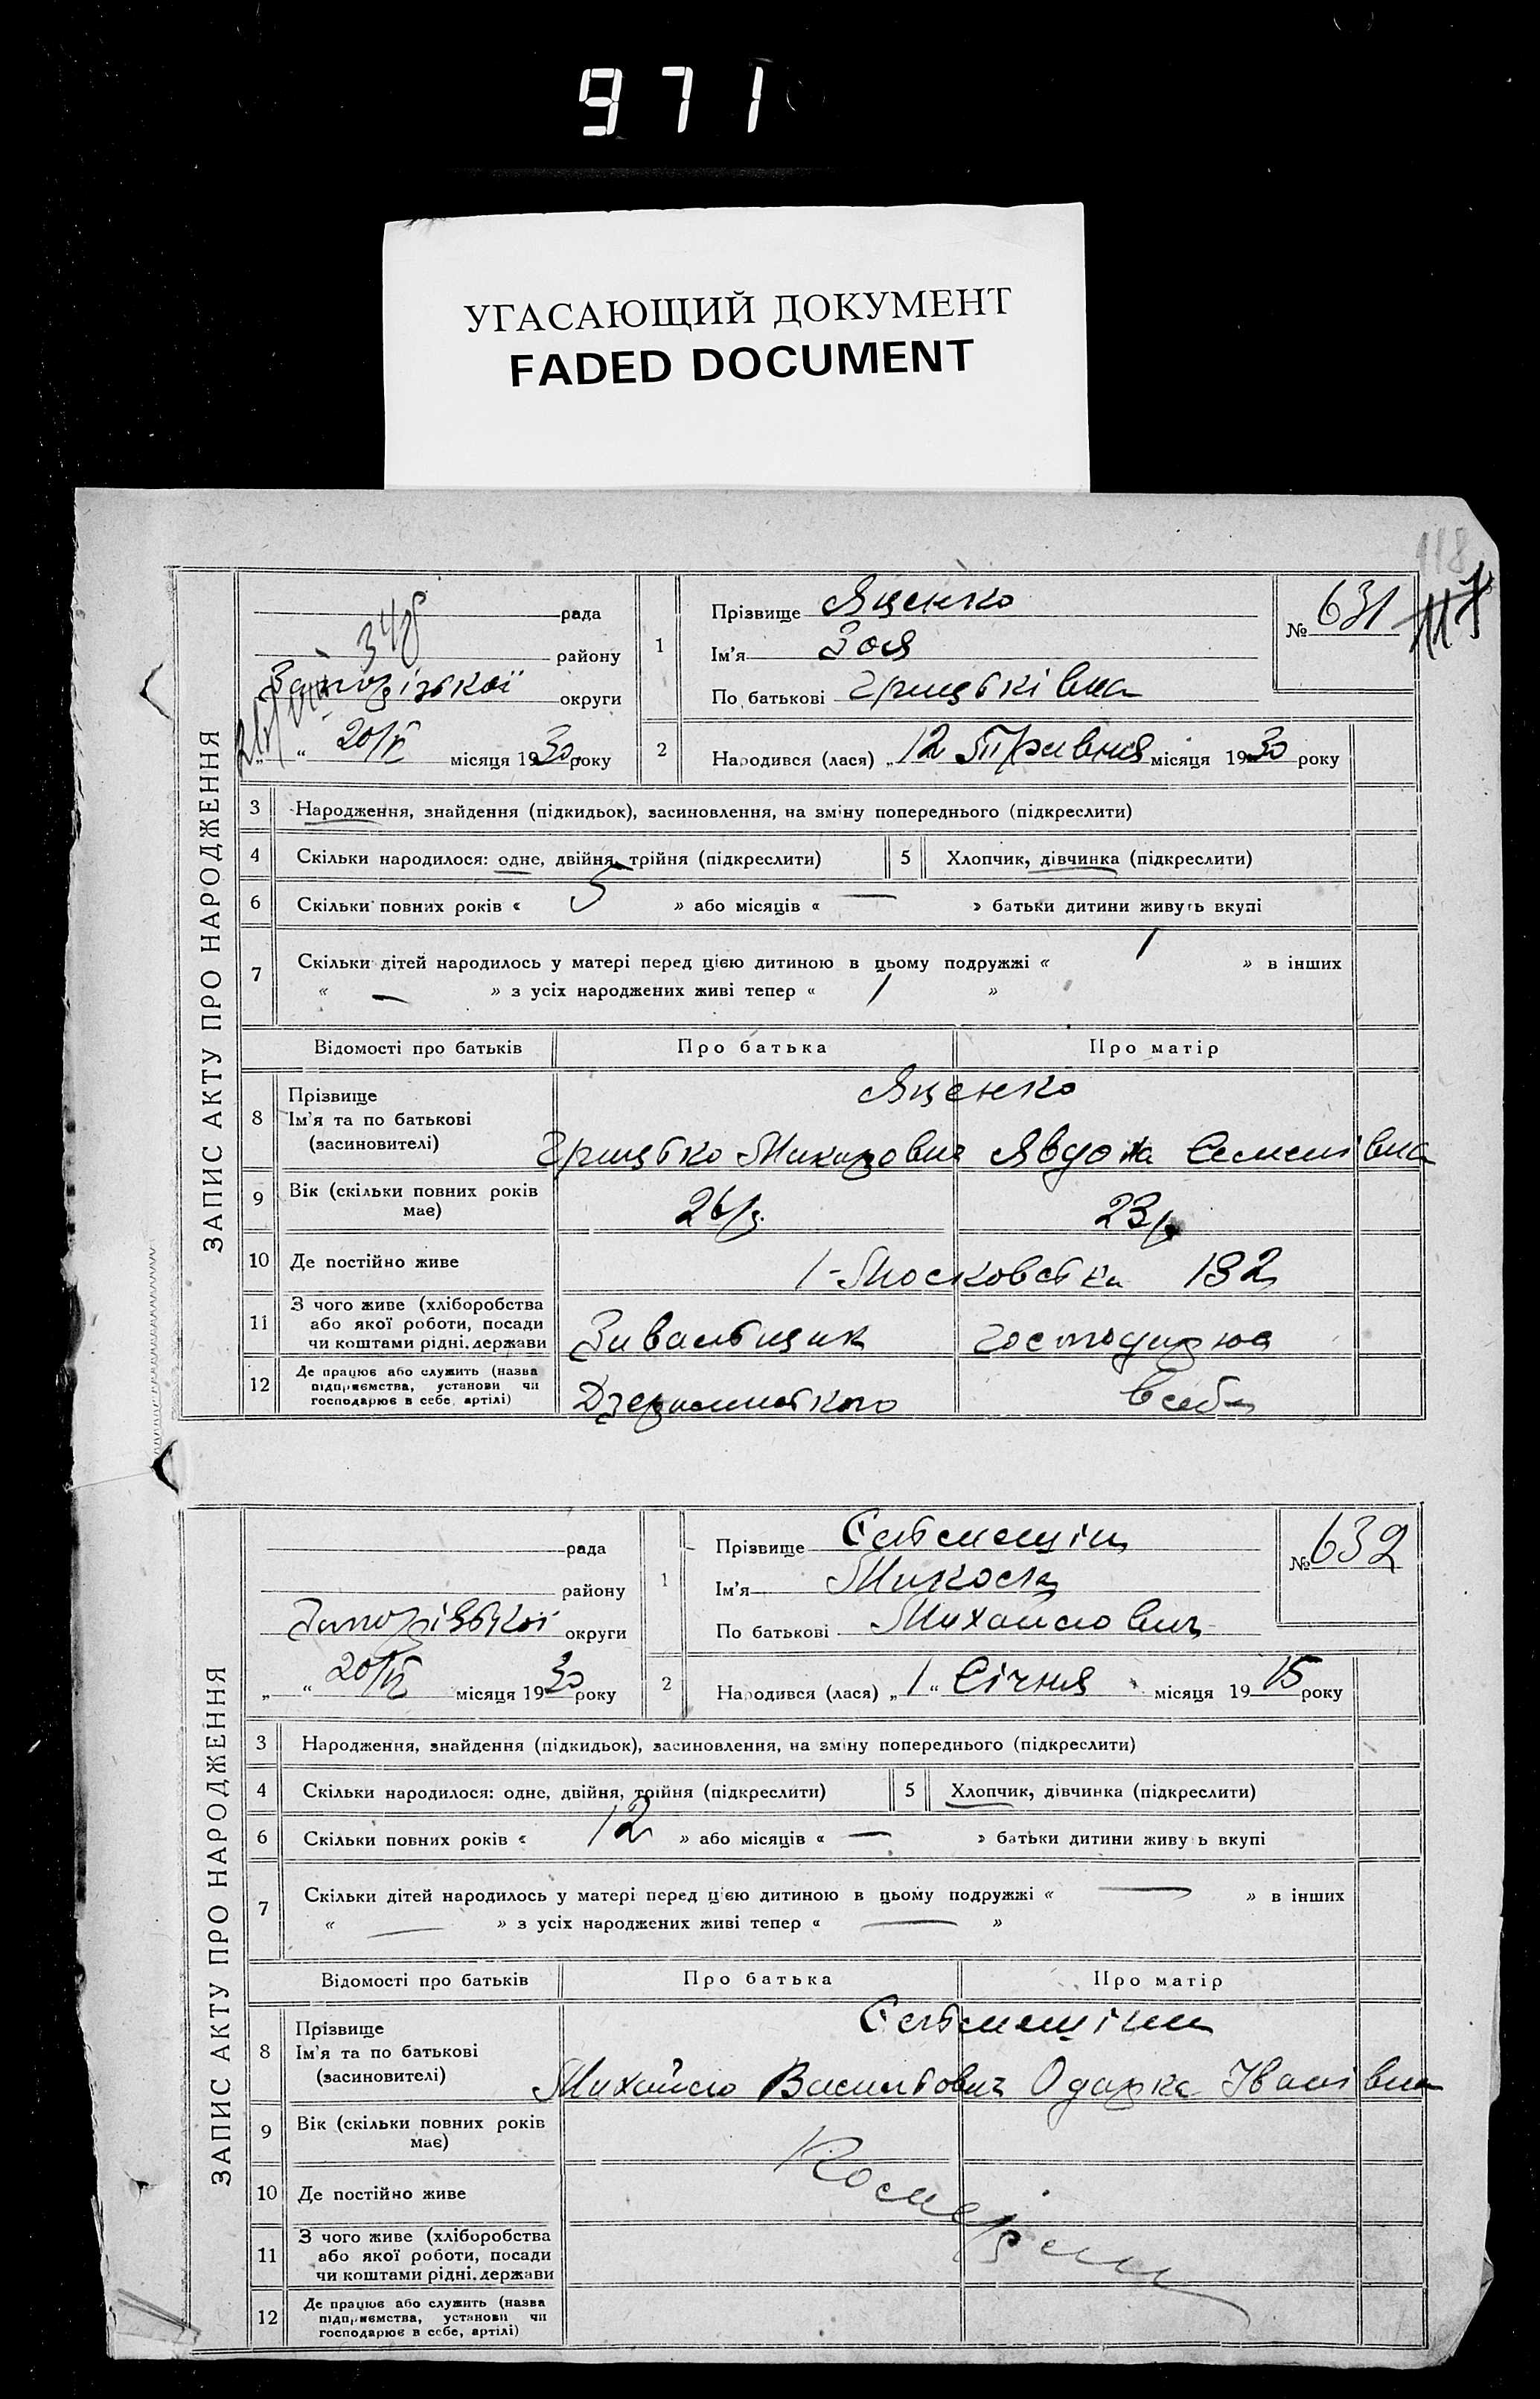 971
УГАСАЮЩИЙ ДОКУМЕНТ
FADED DOCUMENT
118
117
ЗАПИС АКТУ ПРО НАРОДЖЕННЯ
рада
району
Запорізької округи
„ “ 20/V місяця 1930 року
1 Прізвище Яценко
Ім'я Зоя
По батькові Грицьківна
№ 631
2 Народився (лася) „ 12 Травня місяця 1930 року
3 Народження, знайдення (підкидьок), засиновлення, на зміну попереднього (підкреслити)
4 Скільки народилося: одне, двійня, трійня (підкреслити) 5 Хлопчик, дівчинка (підкреслити)
6 Скільки повних років « 5 » або місяців « — » батьки дитини живуть вкупі
7 Скільки дітей народилось у матері перед цією дитиною в цьому подружжі « 1 » в інших
« — » з усіх народжених живі тепер « 1 »
Відомості про батьків Про батька Про матір
8 Прізвище Яценко
Ім'я та по батькові
(засиновителі) Грицько Макарович Явдоха Семенівна
9 Вік (скільки повних років має) 26 р. 23 р.
10 Де постійно живе 1-Московська 132
11 З чого живе (хліборобства
або якої роботи, посади
чи коштами рідні. держави
господарює
12 Де працює або служить (назва
підприємства, установи чи
господарює в себе, артілі)
Дзержинського в себе
ЗАПИС АКТУ ПРО НАРОДЖЕННЯ
рада
району
Запорізької округи
„ “ 20/V місяця 1930 року
1 Прізвище
Ім'я Микола
По батькові Михайлович
№ 632
2 Народився (лася) „ 1 “ Січня місяця 1915 року
3 Народження, знайдення (підкидьок), засиновлення, на зміну попереднього (підкреслити)
4 Скільки народилося: одне, двійня, трійня (підкреслити) 5 Хлопчик, дівчинка (підкреслити)
6 Скільки повних років « 12 » або місяців « — » батьки дитини живу ь вкупі
7 Скільки дітей народилось у матері перед цією дитиною в цьому подружжі « — » в інших
« — » з усіх народжених живі тепер « — »
Відомості про батьків Про батька Про матір
8 Прізвище
Ім'я та по батькові
(засиновителі) Михайло Васильович Одарка Іванівна
9 Вік (скільки повних років має)
10 Де постійно живе
11 З чого живе (хліборобства
або якої роботи, посади
чи коштами рідні. держави
12 Де працює або служить (назва
підприємства, установи чи
господарює в себе, артілі)